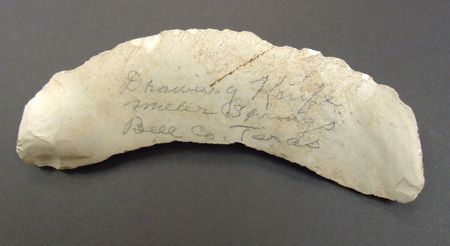 Drawing Knife
Miller Springs
Bell Co. Texas